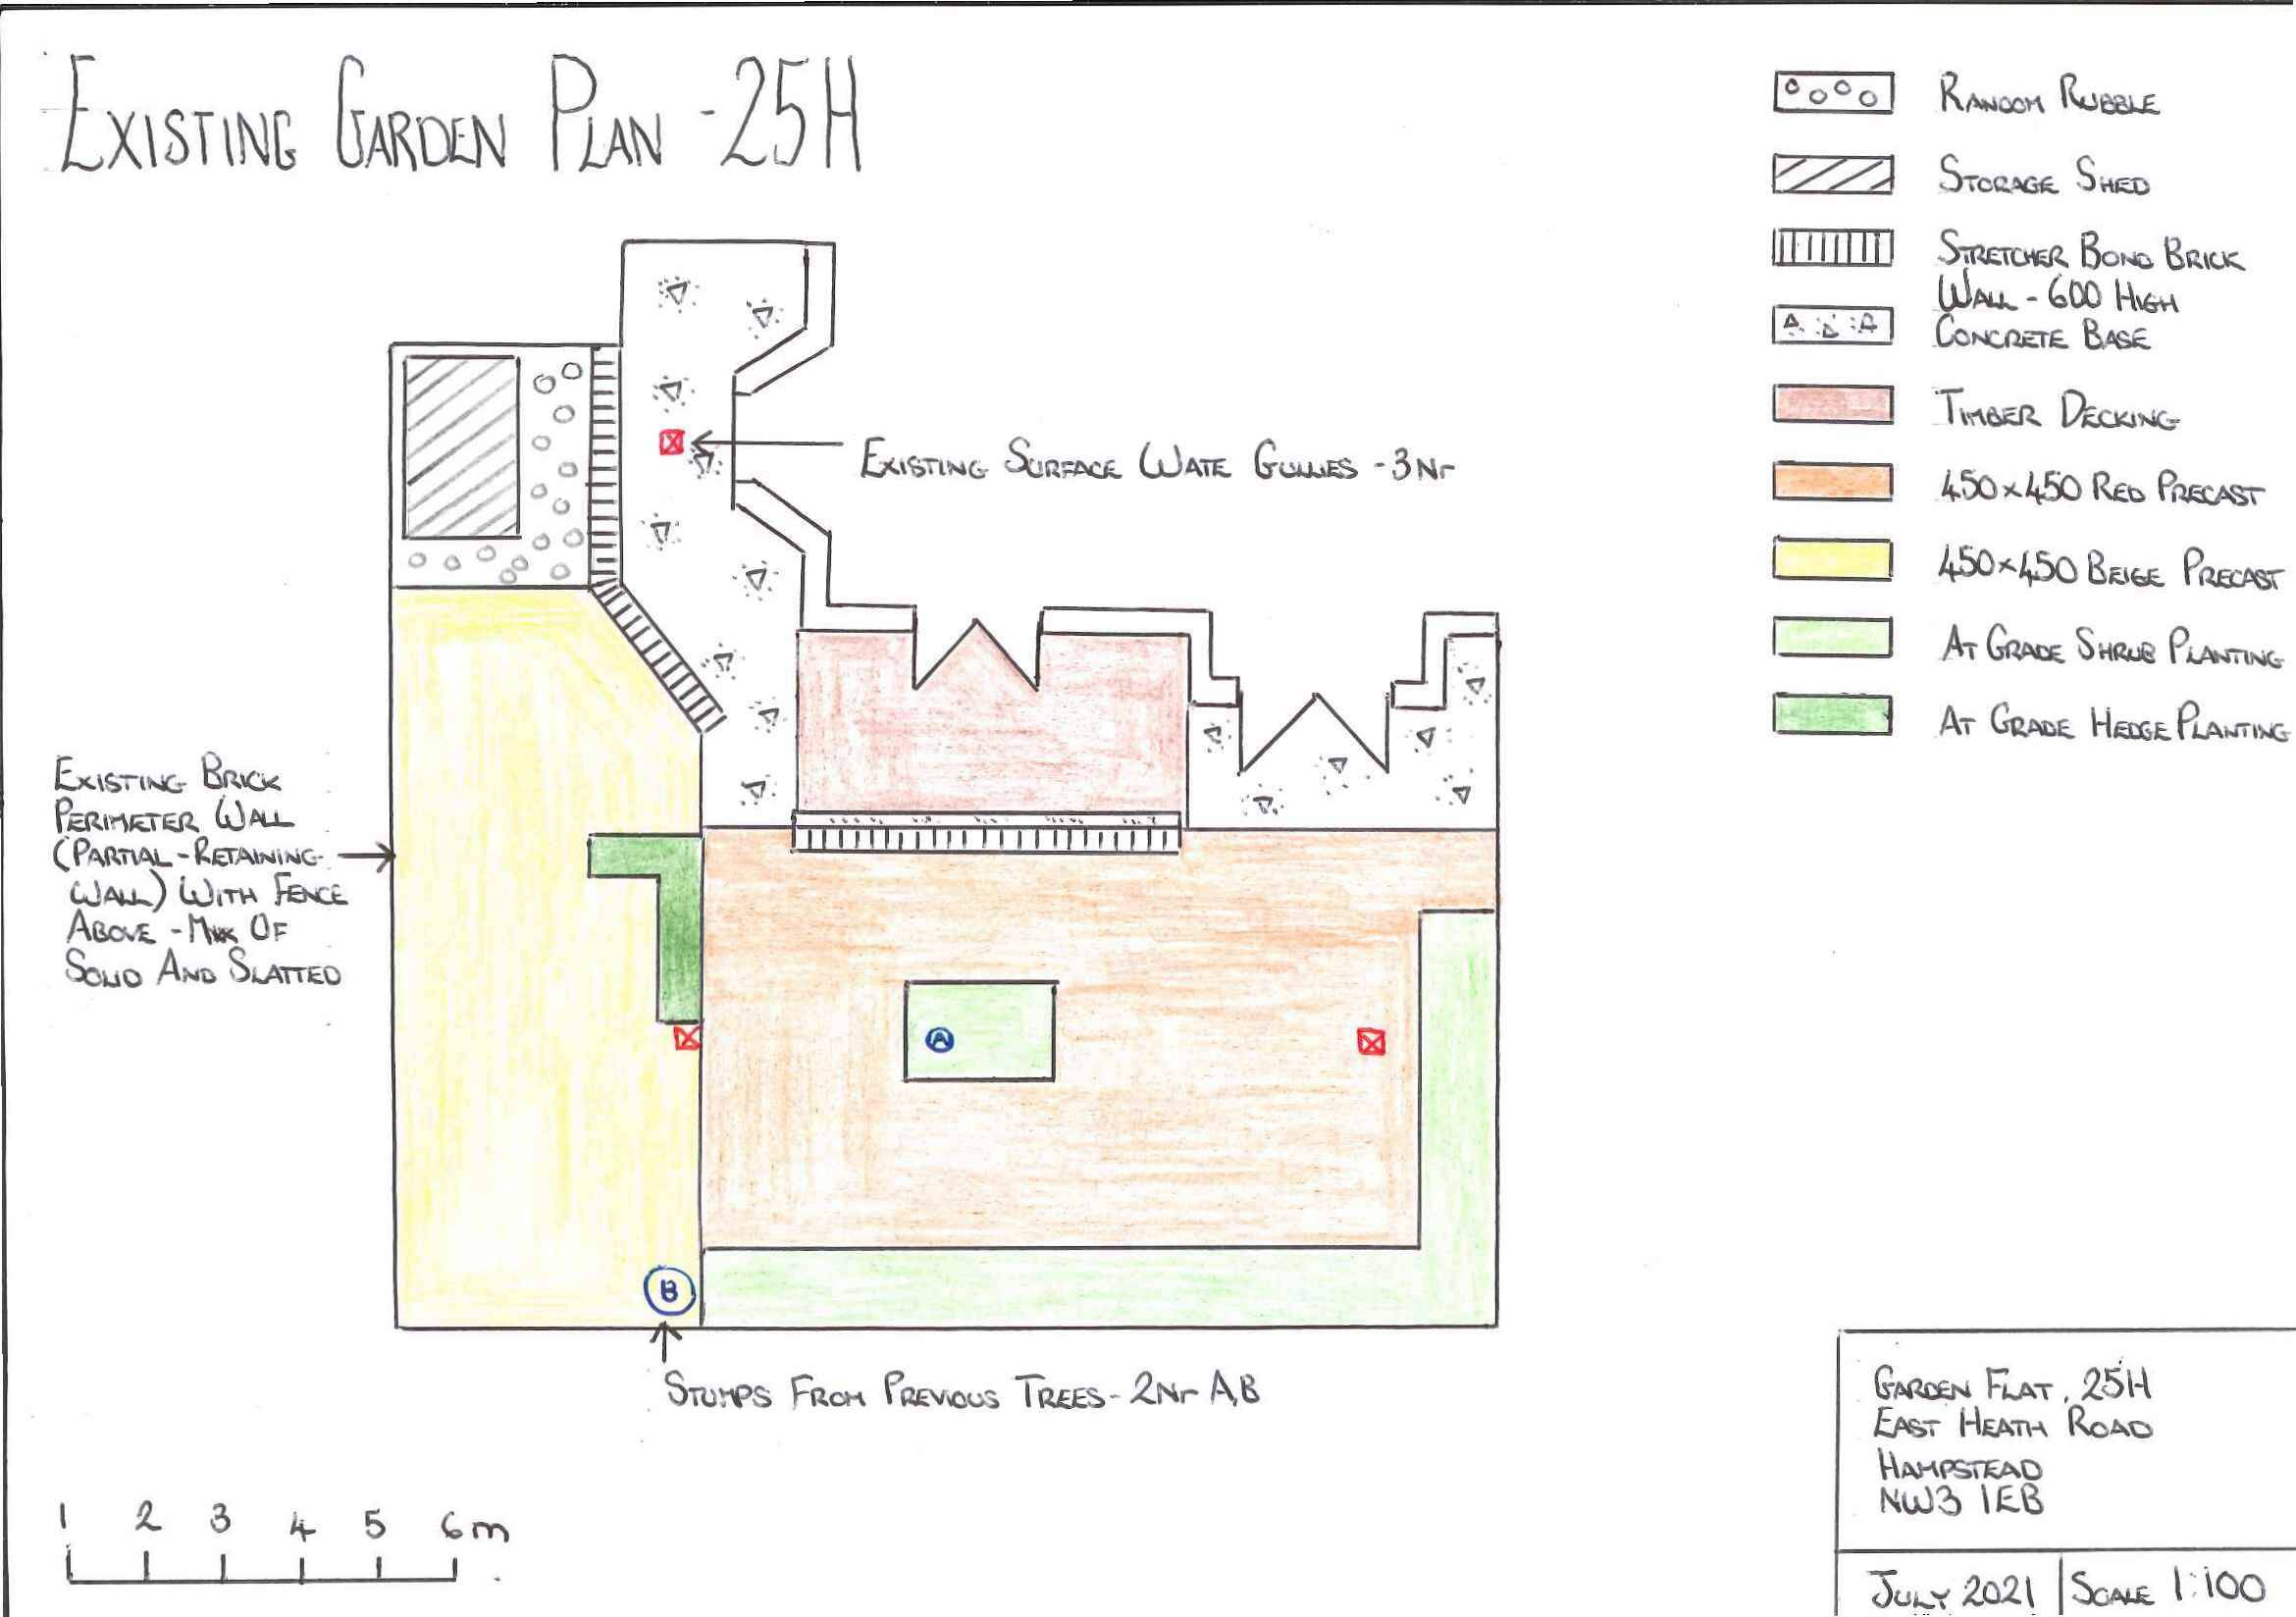 EXISTING GARDEN PLAN - 25H
RANDOM RUBBLE
STORAGE SHED
STRETCHER BOND BRICK
WALL - 600 HIGH
CONCRETE BASE
TIMBER DECKING
450x450 RED PRECAST
450x450 BEIGE PRECAST
AT GRADE SHRUB PLANTING
AT GRADE HEDGE PLANTING
EXISTING SURFACE WATE GULLIES - 3Nr
EXISTING BRICK
PERIMETER WALL
(PARTIAL-RETAINING
WALL) WITH FENCE
ABOVE - MIX OF
SOLID AND SLATTED
A
B
STUMPS FROM PREVIOUS TREES - 2Nr A,B
1 2 3 4 5 6m
GARDEN FLAT, 25H
EAST HEATH ROAD
HAMPSTEAD
NW3 1EB
JULY 2021 SCALE 1:100